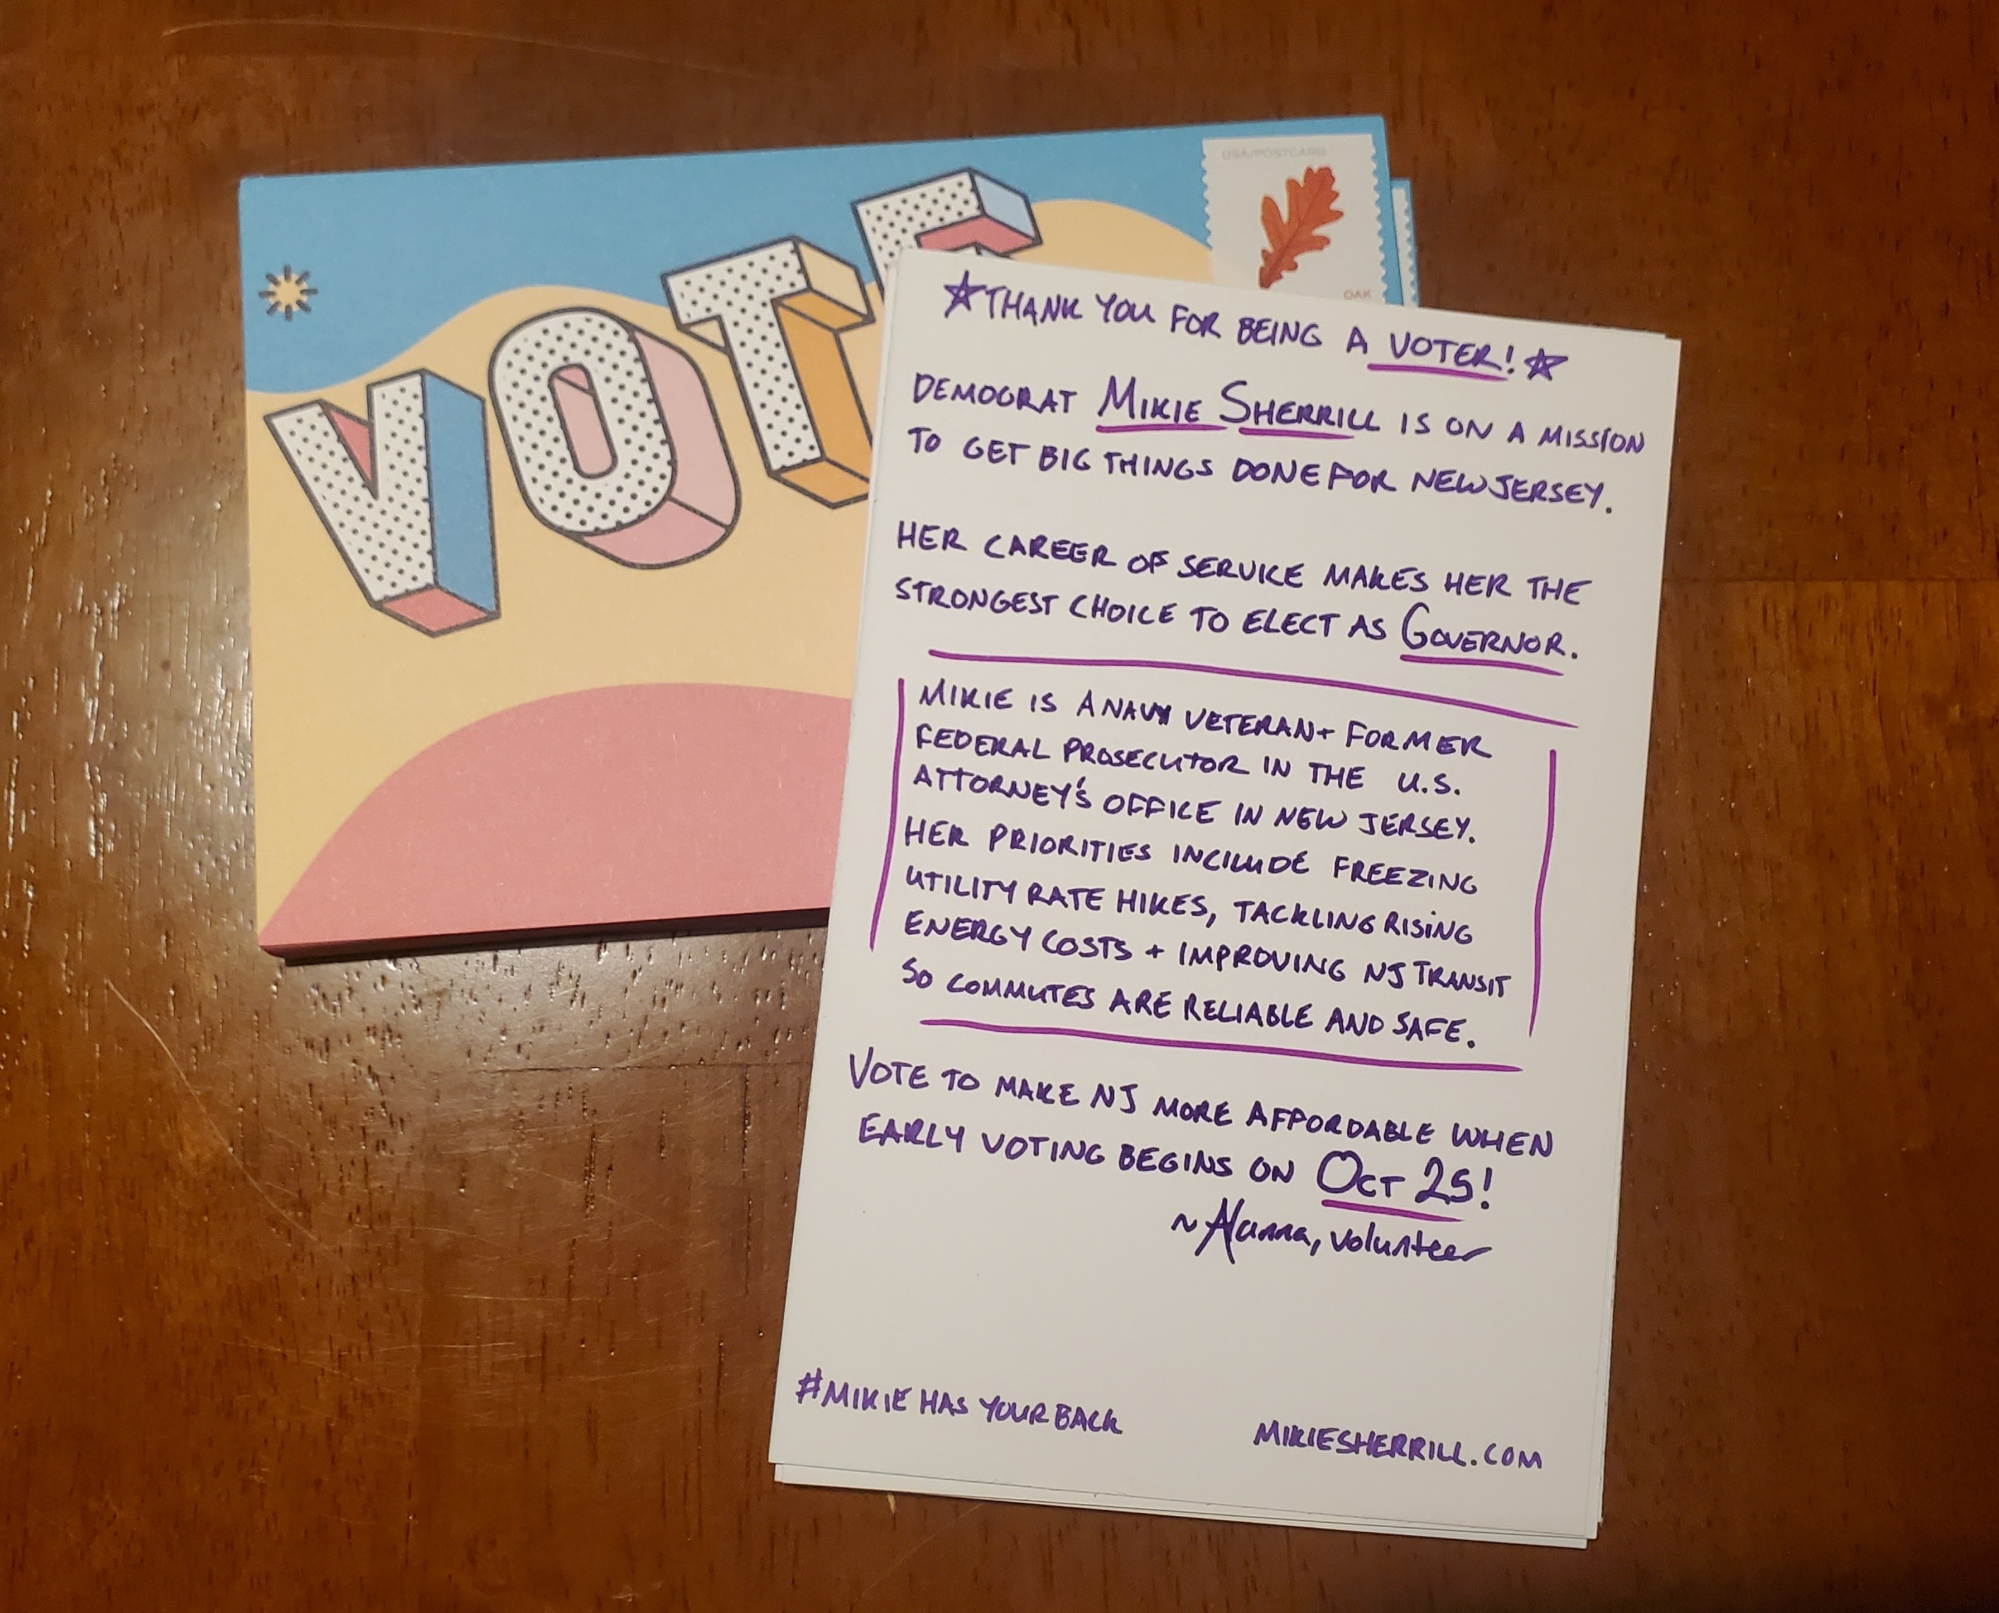 VOTE
USA/POSTCARD
OAK
☆THANK YOU FOR BEING A VOTER!☆
DEMOCRAT MIKIE SHERRILL IS ON A MISSION
TO GET BIG THINGS DONE FOR NEW JERSEY.
HER CAREER OF SERVICE MAKES HER THE
STRONGEST CHOICE TO ELECT AS GOVERNOR.
MIKIE IS A NAVY VETERAN + FORMER
FEDERAL PROSECUTOR IN THE U.S.
ATTORNEY'S OFFICE IN NEW JERSEY.
HER PRIORITIES INCLUDE FREEZING
UTILITY RATE HIKES, TACKLING RISING
ENERGY COSTS + IMPROVING NJ TRANSIT
SO COMMUTES ARE RELIABLE AND SAFE.
VOTE TO MAKE NJ MORE AFFORDABLE WHEN
EARLY VOTING BEGINS ON OCT 25!
~Alanna, volunteer
#MIKIE HAS YOUR BACK
MIKIESHERRILL.COM